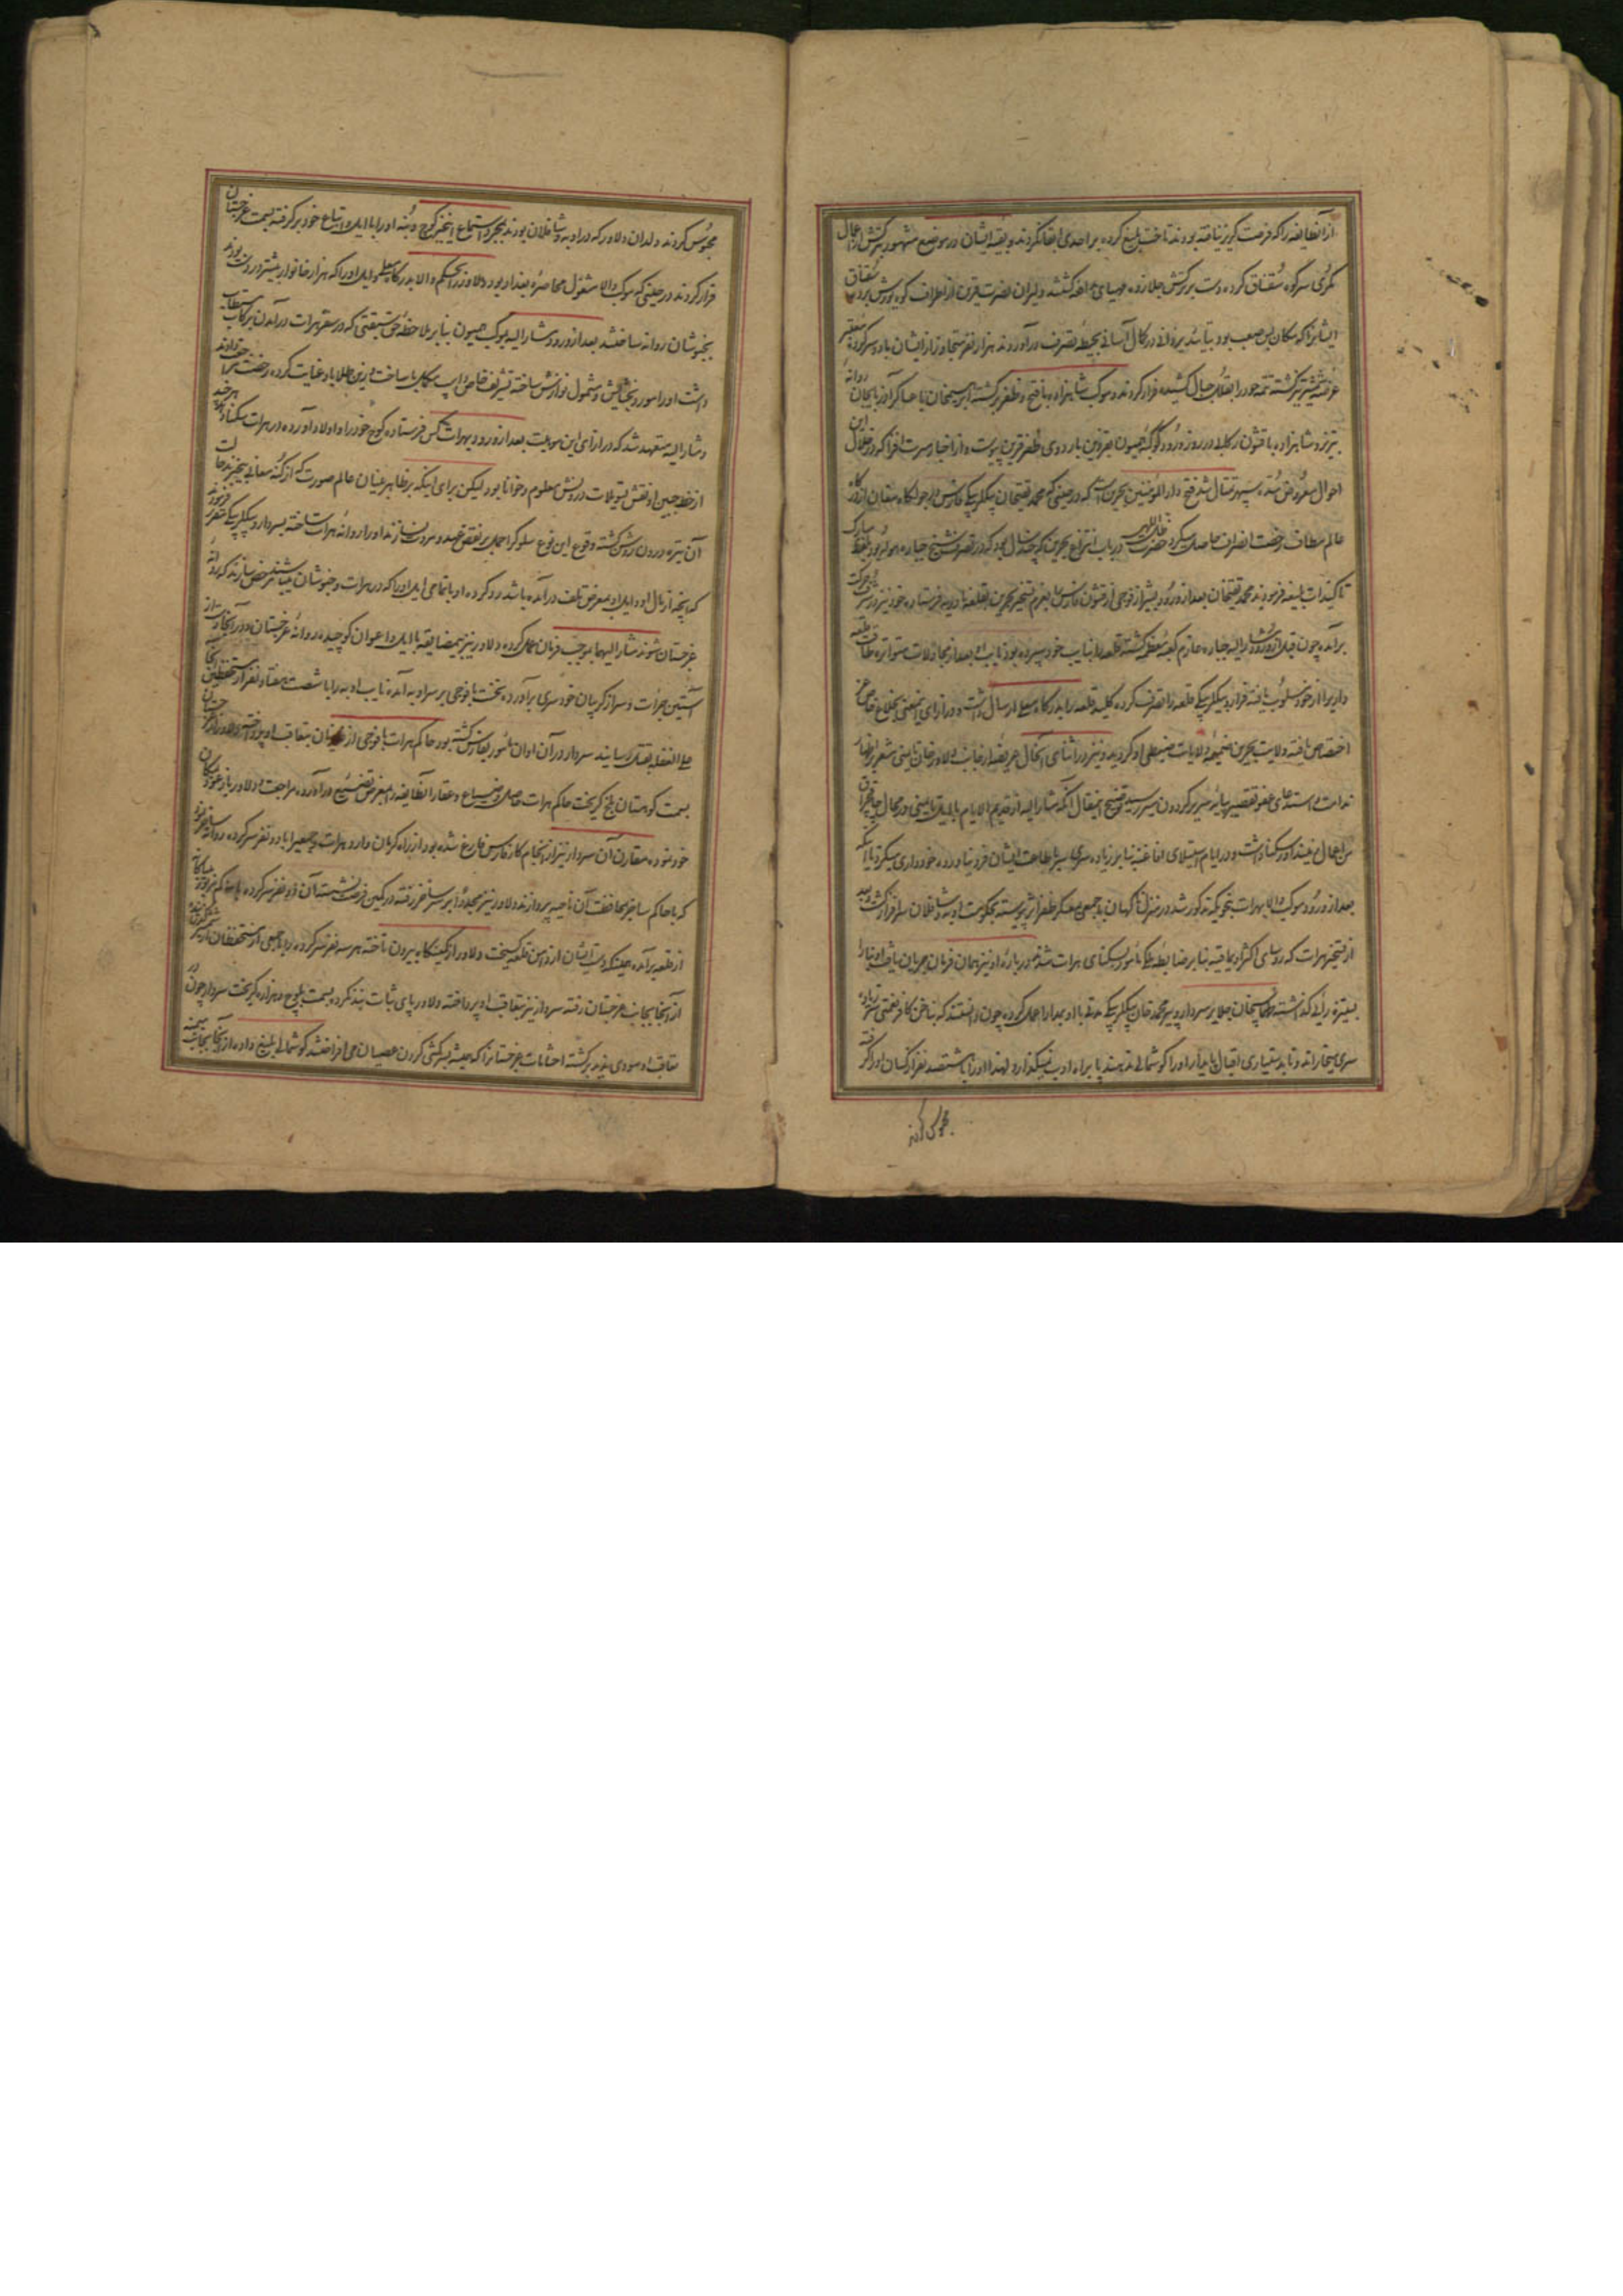 از آنطایفه را که فرصت گریز نیافته بودند تاخت بلیغ کرده بر احدی ابقا نکردند و بقیه ایشان در موضع مشهور بترکش از اعمال
مکری سرکوه سقناق کرده دست بترکش جلادت زده مهیای مدافعه گشتند دلیران نصرت قرین از اطراف کوه یورش برده سقناق
ایشانرا که مکان بس صعب بود بتأیید یزدانی در کمال آسانی بحیطه تصرف درآوردند هزار نفر متجاوز از ایشان با دو سرکرده معتبر
عرضه شمشیر گشته تتمه خود را بقلل جبال کشیده فرار کردند و موکب شاهزاده با فتح و ظفر برگشته ابراهیمخان با عساکر آذربایجان روانه
تبریز و شاهزاده با قشون رکابی در روز ورود کوکبه همیون بقزوین باردوی ظفر قرین پیوست و از اخبار مسرت افزا که در خلال این
احوال معروض سده سپهر تمثال شد فتح دار المؤمنین بحرین است که در حینی که محمد تقیخان بیگلربیگی فارس در جولگاه مغان از درگاه
عالم مطاف رخصت انصراف حاصل میکرد حضرت ظل اللهی در باب انتزاع بحرین که چند سال بود که در تصرف شیخ جباره هوله بود بلفظ مبارک
تاکیدات بلیغه فرمودند محمد تقیخان بعد از ورود بشیراز فوجی از قشون فارس را بعزم تسخیر بحرین بقلعه نادریه فرستاده خود نیز در شرف حرکت
برآمد چون قبل از ورود مشار الیه جباره عازم کعبه معظمه گشته قلعه را بنایب خود سپرده بود نایب او بعد از مجادلات متواتره طاقت قلعه
داری را از خود مسلوب یافته فرار و بیگلربیگی قلعه را تصرف کرده کلید قلعه را بدرگاه معلی ارسال داشت و در ازای اینمعنی بخلاع فاخره
اختصاص یافته ولایت بحرین ضمیمه ولایات ضبطی او گردید و نیز در اثنای آنحال عریضه از جانب دلاور خان تایمنی مشعر بر اظهار
ندامت و استدعای عفو تقصیر بپایه سریر گردون مسیر رسید توضیح اینمقال آنکه مشار الیه از قدیم الایام با ایل تایمنی در محال چاقچران
من اعمال غور سکنا داشت و در ایام استیلای افاغنه بنا بر زیاده سری سر باطاعت ایشان فرو نیاورده خودداری میکرد تا اینکه
بعد از ورود موکب والا بهرات بنحویکه مذکور شد در منزل ناگهان با جمعی بمعسکر ظفر اثر پیوسته بحکومت اوبه و شافلان سرافراز گشت و بعد
از تسخیر هرات که رؤسای اکثر اویماقیه بنا بر ضابطه ملکی مأمور بسکنای هرات شدند در باره او نیز همان فرمان جریان یافت او بنا را
بستیزه رایی گذاشته طهماسبخان جلایر سردار و پیر محمد خان بیگلربیگی مدتی با او بمدارا عمل کرده چون دانستند که بناخن کافر نعمتی سر زیاده
سری میخاراند و تا بدستیاری اقبال پایدار او را گوشمالی ندهند پا براه ادب نمیگذارد لهذا او را با ششصد نفر از کسان او گرفته
محبوس کردند
محبوس کردند ولدان دلاور که در اوبه و شافلان بودند بمجرد استماع اینخبر کوچ و بنه او را با ایل و اتباع خود برگرفته بسمت غرجستان
فرار کردند در حینی که موکب والا مشغول محاصره بغداد بود دلاور را بحکم والا بدرگاه معلی و ایل او را که هزار خانوار بیشتر در دست بودند
بخبوشان روانه ساختند بعد از ورود مشار الیه بموکب همیون بنا بر ملاحظه حق سبقتی که در سفر هرات در آمدن برکاب مستطاب
داشت او را مورد بخشایش و مشمول نوازش ساخته تشریف خاص و اسب مکمل با ساخت و زین طلا باو عنایت کرده رخصت مراجعت دادند
و مشار الیه متعهد شد که در ازای این موهبت بعد از ورود بهرات کس فرستاده کوچ خود را و اولاد آورده در هرات سکنا دهد هر چند
از خط جبین او نقش تسویلات درونش معلوم و خوانا بود لیکن برای اینکه بر ظاهر بینان عالم صورت که از کنه معانی بیخبرند حالت
آن تیره درون روشن گشته وقوع این نوع سلوک را حمل بر نقض عهد و مروت نسازند او را روانه هرات ساخته بسردار و بیگلربیگی مقرر فرمودند
که آنچه از مال او و ایل او بمعرض تلف در آمده باشد رد کرده او با تمامی ایل او را که در هرات و خبوشان میباشند مرخص سازند که روانه
غرجستان شوند مشار الیهما بموجب فرمان عمل کرده دلاور نیز بیمضایقه با ایل و اعوان کوچیده روانه غرجستان و در آنجا دست از
آستین جرأت و سر از گریبان خودسری برآورده نخست با فوجی بر سر اوبه آمده نایب اوبه را با شصت هفتاد نفر از مستحفظین آنجا
علی الغفله بقتل رسانید سردار در آن اوان مأمور بفارس گشته بود حاکم هرات با فوجی از غازیان بتعاقب او پرداخته دلاور از غرجستان
بسمت کوهستان بلخ گریخت حاکم هرات حاصل و ضیاع و عقار آنطایفه را بمعرض تضییع درآورده مراجعت و دلاور باز عود بمکان
خود نموده مقارن آن سردار نیز از انجام کار فارس فارغ شده بود از راه کرمان وارد هرات و جمعی را با دو نفر سرکرده روانه ساخر نمود
که با حاکم ساخر بمحافظت آن ناحیه پردازند دلاور نیز مجددا بر سر ساخر رفته در کمین فرصت نشست آن دو نفر سرکرده با حاکم مزبور بیباکانه
از قلعه برآمده همینکه دست ایشان از دامن قلعه گسیخت دلاور از کمینگاه بیرون تاخته هر سه نفر سرکرده را با جمعی از مستحفظان دستگیر کرده
از آنجا بجانب غرجستان رفته سردار نیز بتعاقب او پرداخته دلاور پای ثبات بند نکرده بسمت بلخ و هزاره گریخت سردار چون در
تعاقب او سودی ندید برگشته احشامات غرجستان را که همیشه بسرکشی گردن عصیان می افراختند گوشمالی بلیغ داده از آنجا بجانب میمنه